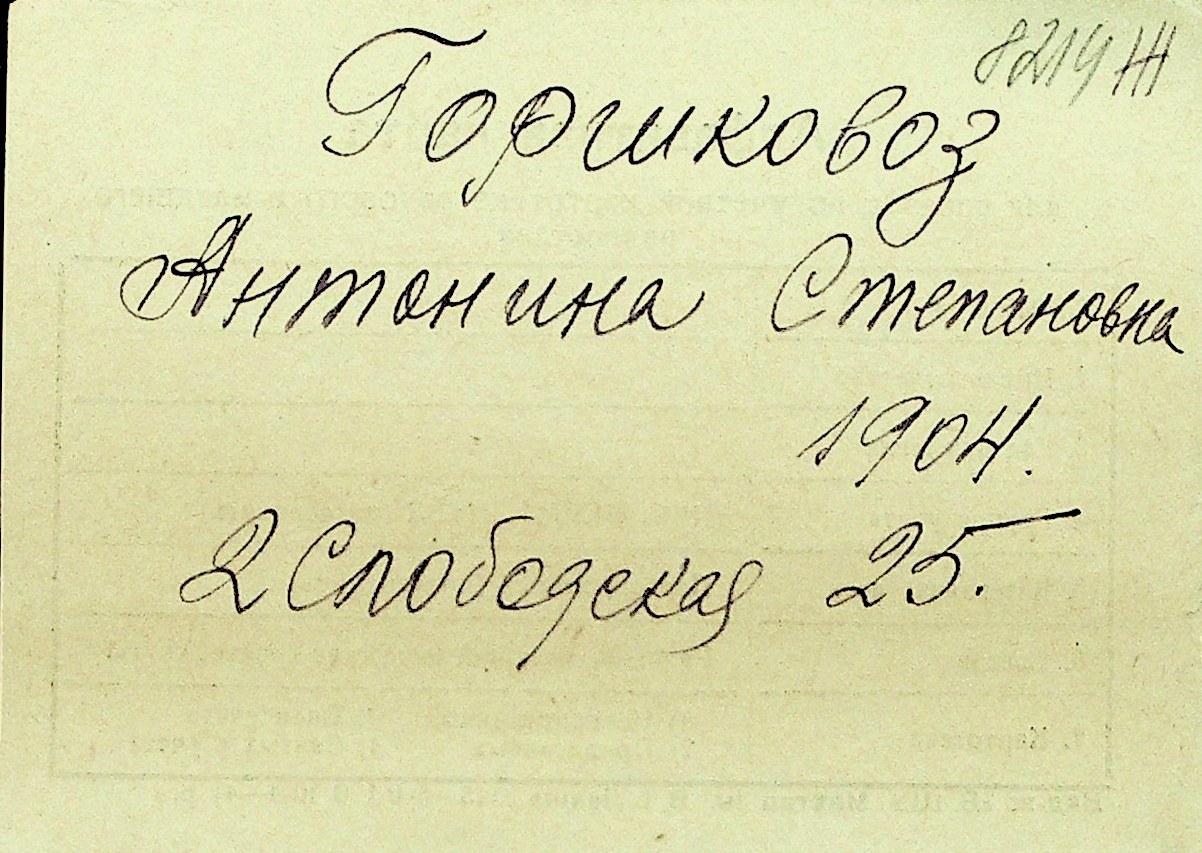 8214 Ж
Горшковоз
Антонина Степановна
1904.
2 Слободская 25.